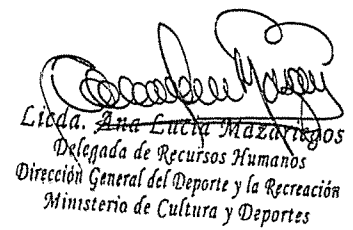 Licda. Ana Lucía Mazariegos
Delegada de Recursos Humanos
Dirección General del Deporte y la Recreación
Ministerio de Cultura y Deportes